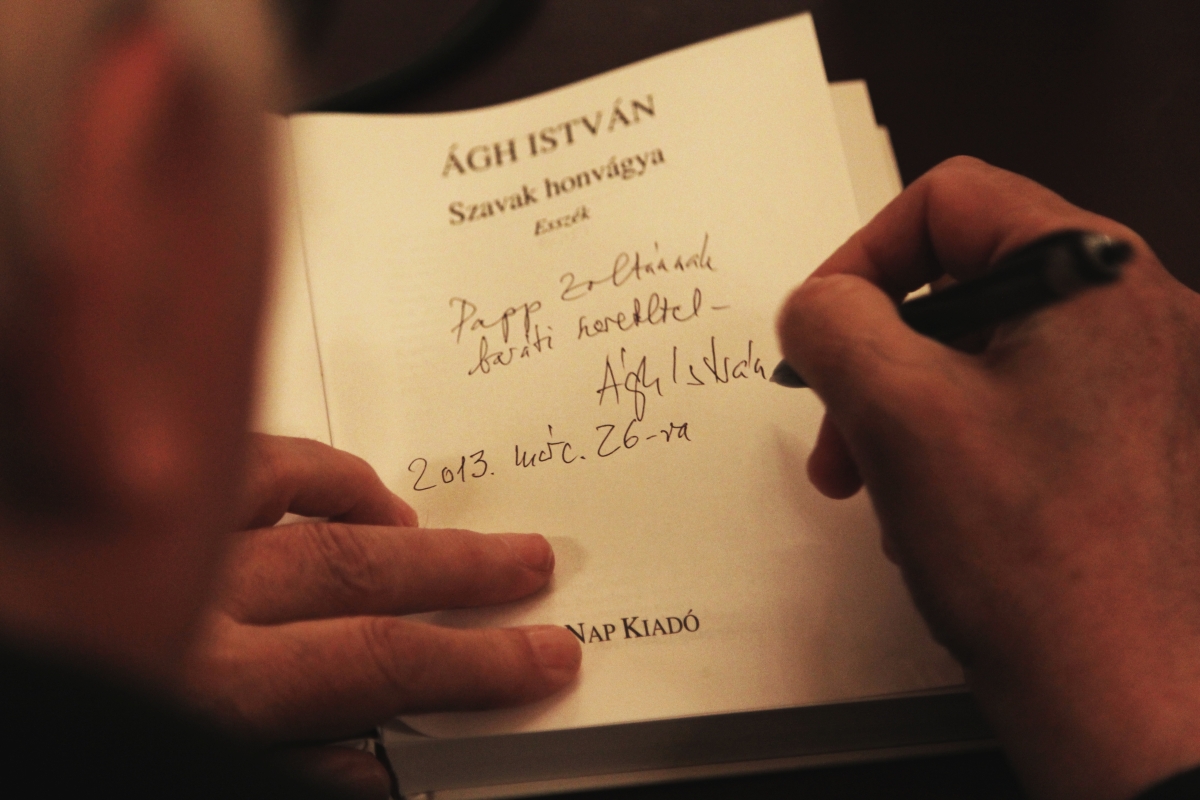 ÁGH ISTVÁN
Szavak honvágya
Esszék
Papp Zoltánnak
baráti szeretettel –
Ágh István
2013. márc. 26-ra
NAP KIADÓ